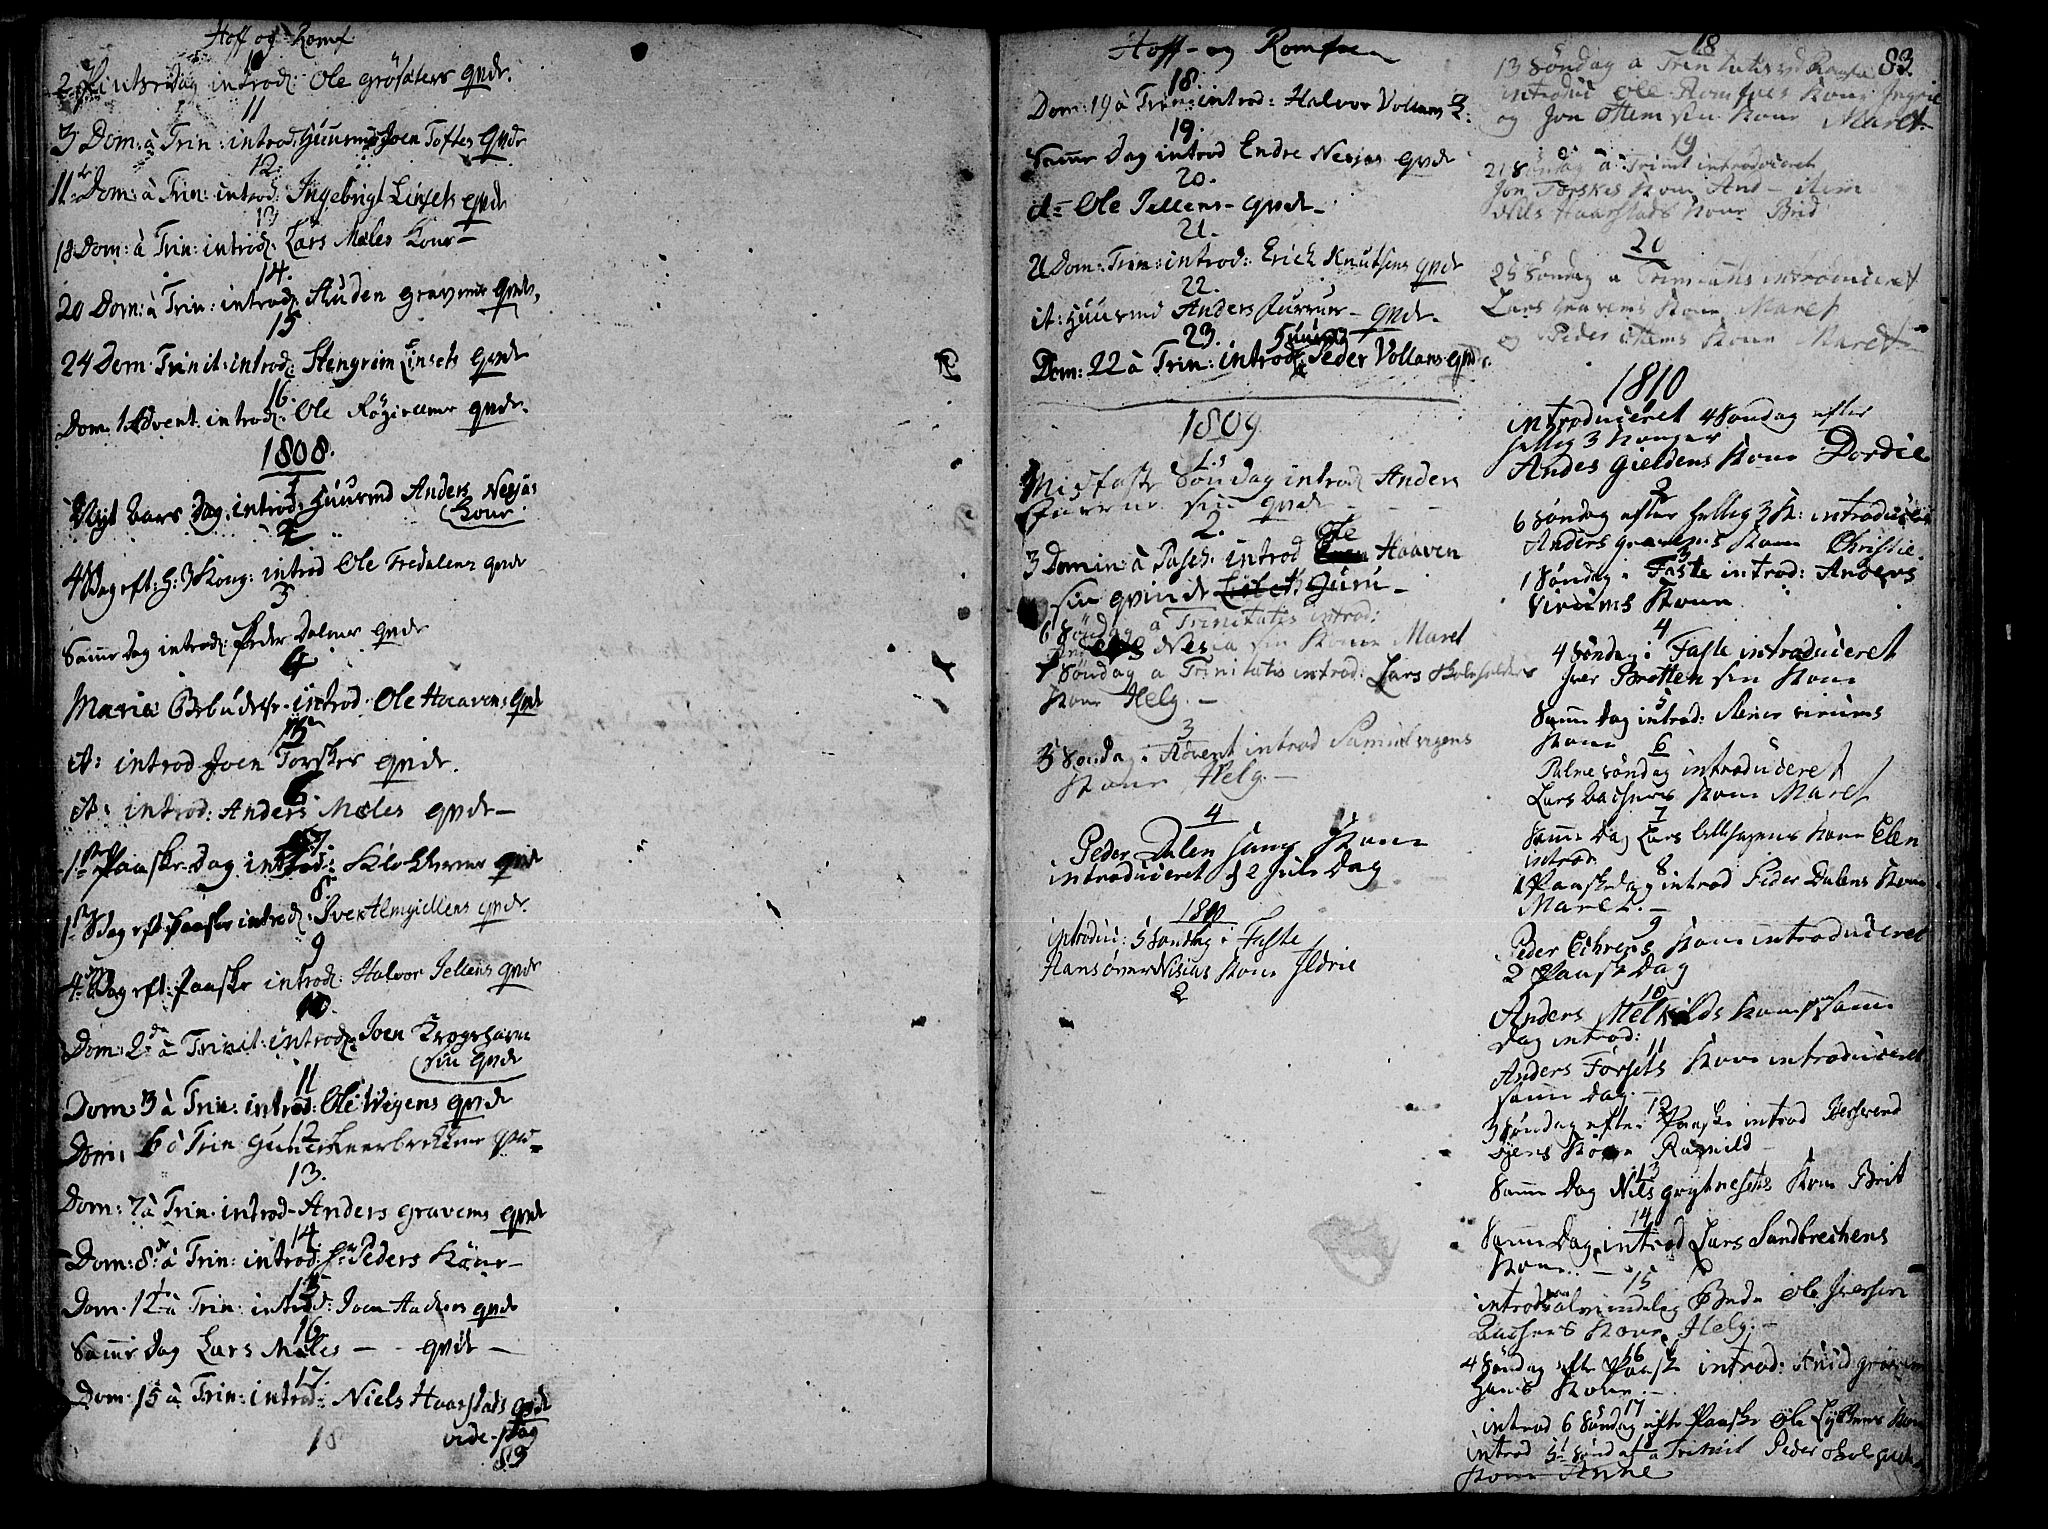 Hoff og Romf.
10
2 Pintse Dag introd: Ole Grösæters qvde.
11
3 Dom: à Trin: introd: Huusmd Joen Toftes Qvde
12.
11te Dom: à Trin: introd: Ingebrigt Linsets qvde
13
18 Dom: à Trin: introd: Lars Mæles Kone –
14.
20 Dom: à Trin: introd: Gravems Qvde.
15
24 Dom. Trinit: introd: Stengrim Linsets qvde
16.
Dom. 1 Advent. introd: Ole qvde.
1808.
1
Nyt Aars Dag, introd: Huusmd Anders Nesjas
Kone.
2
4 S Dag eft: H: 3 Kong: introd Ole Fredalens qvde
3
Samme Dag introd: Peder Dalens qvde
4
Mariæ Bebudelse introd. Ole Haavens qvde
5
it: introd Joen Torskes qvde.
6
it: introd: Anders Mæles qvde –
7.
1ste Paaske-Dag introd: Klokkerens qvde
8
1ste S Dag eft Paaske introd: qvde.
9
4de S Dag eft: Paaske introd: Halvor Jellens qvde
10
Dom: 2de à Trinit: introd: Joen Krogshavn
sin qvde
11
Dom: 3 à Trin: introd: Ole Wigens qvde
12
Dom: 6 à Trin qvde –
13.
Dom: 7 à Trin. introd – Anders Gravems qvde
14.
Dom: 8de à Trin: introd: Hr Peders Köne –
15
Dom. 12te à Trin: introd: Joen qvde
16.
Samme Dag Lars Mæles – – qvde –
17.
Dom: 15 à Trin: introd: Niels Haarstads qvde
18
vide pag
83
Hoff – og Romfoe
18.
Dom: 19 à Trin: introd: Halvor Vollans Q:
19.
Samme Dag introd Endre Nesjas qvde
20.
it= Ole Jellens – qvde –
21.
21 Dom: Trin: introd: Erich Knutsens qvde
22.
it: Huusmd Anders Furrues – qvde.
23.
Huusmd
Dom: 22 à Trin: introd: Peder Vollans qvde.
1809
1.
Midfaste Söndag introd Anders
Furrue sin qvde – – –
2.
Ole
3 Domin: à Pasch: introd Haaven
sin qvinde Guru –
6 Söndag a Trinitatis introd:
Nesia sin Kone Maret
7 Söndag a Trinitatis introd: Lars
Kone Helg. –
3
3 Sondag i Advent introd Samuel vigens
Kone Helg –
4
Peder Dalen Kone
introduceret d 2 Jule Dag
1810
introdu: 5 Söndag i Faste
Hans Nisias Kone Ildrie
2
83
18
13 Söndag a Trinitatis
introdu Ole Romfoes Kone Ingrie
og Jon Ottem sin Kone Maret –
19
21 Söndag a Trinit introduceret
Jon Torskes Kone And – item
Nils Haarstads Kone Brid
20
25 Söndag a Trinitatis introduceret
Lars Gravems Kone Maret
og Peder Ottems Kone Maret –
1810
introduceret 4 Söndag efter
hellig 3 Konger
Andes Gieldens Kone Dordie
2
6 Söndag efter hellig 3 K: introduceret
Anders Gravems Kone Christie.
3
1 Söndag i Faste introd: Anders
Virums Kone
4
4 Söndag i Faste introduceret
Iver Brotten sin Kone
5
Samme Dag introd: Steiner Virums
Kone
6
Palme söndag introduceret
Lars Bachens Kone Maret
7
Samme Dag Lars Lillehagens Kone Elen
introd:
8
1 Paaskedag introd Peder Dalens Kone
Maret. –
9
Peder Kone introduceret
2 Paaske Dag
10
Anders Melkilds Kone samme
Dag introd:
11
Anders Forsets Kone introduceret
samme Dag. –
12
3 Söndag efter Paaske introd
Kone Ragnild
13
Samme Dag Nils Grytnesets Kone Brit
14
Samme Dag introd Lars Sandbrechens
Kone. –
15
introd almindelig Bede Ole Iversen
Bachens Kone Helg. –
16
4 Söndag efter Paaske introd:
Kone. –
17
introd 6 Söndag efter Paaske Ole Kone
18
introd 5te Söndag a Trinit Peder
Kone Anne